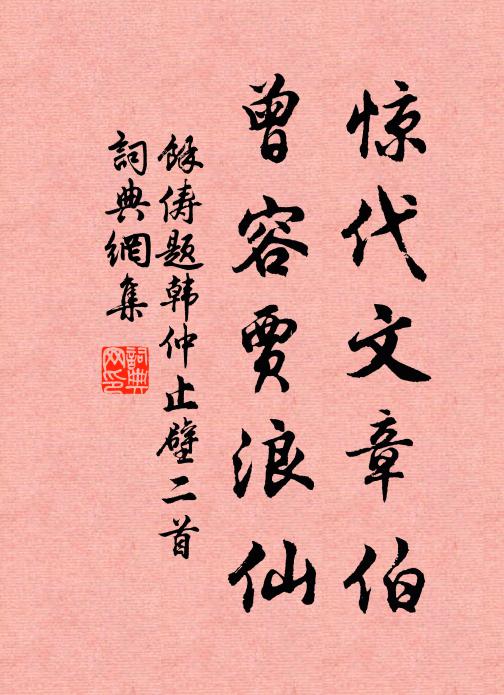 惊代文章伯
曾容贾浪仙
馀俦题韩仲止壁二首
詞典網集
詞典网印